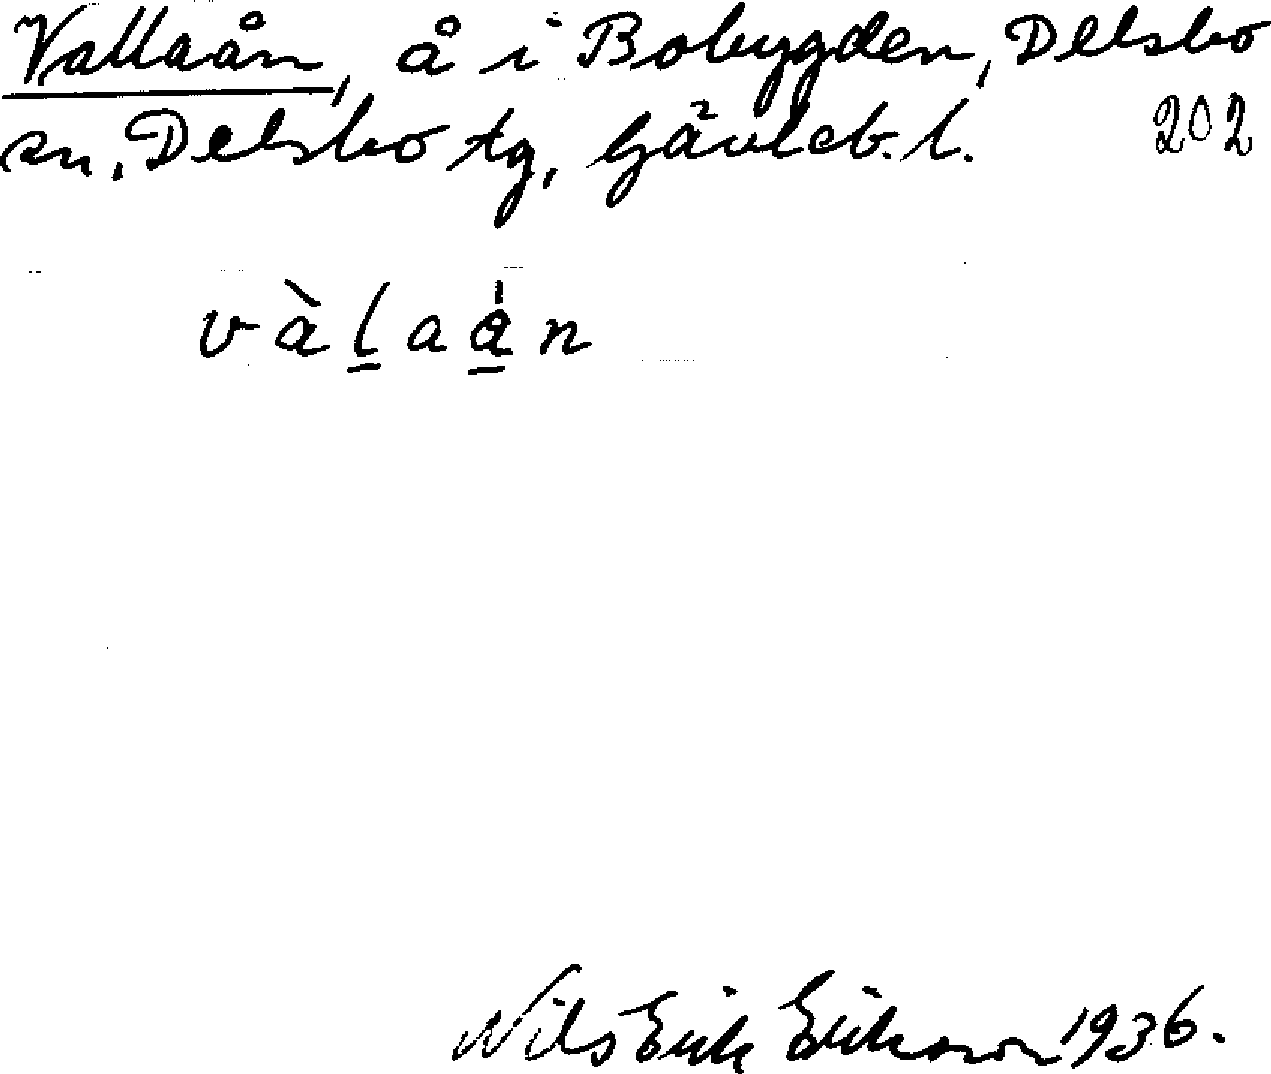 Vallaån, å i Bobygden, Delsbo
sn, Delsbo tg, Gävleb. l. 202
vàl̲aa̲̍n
Nils Erik Erikson 1936.